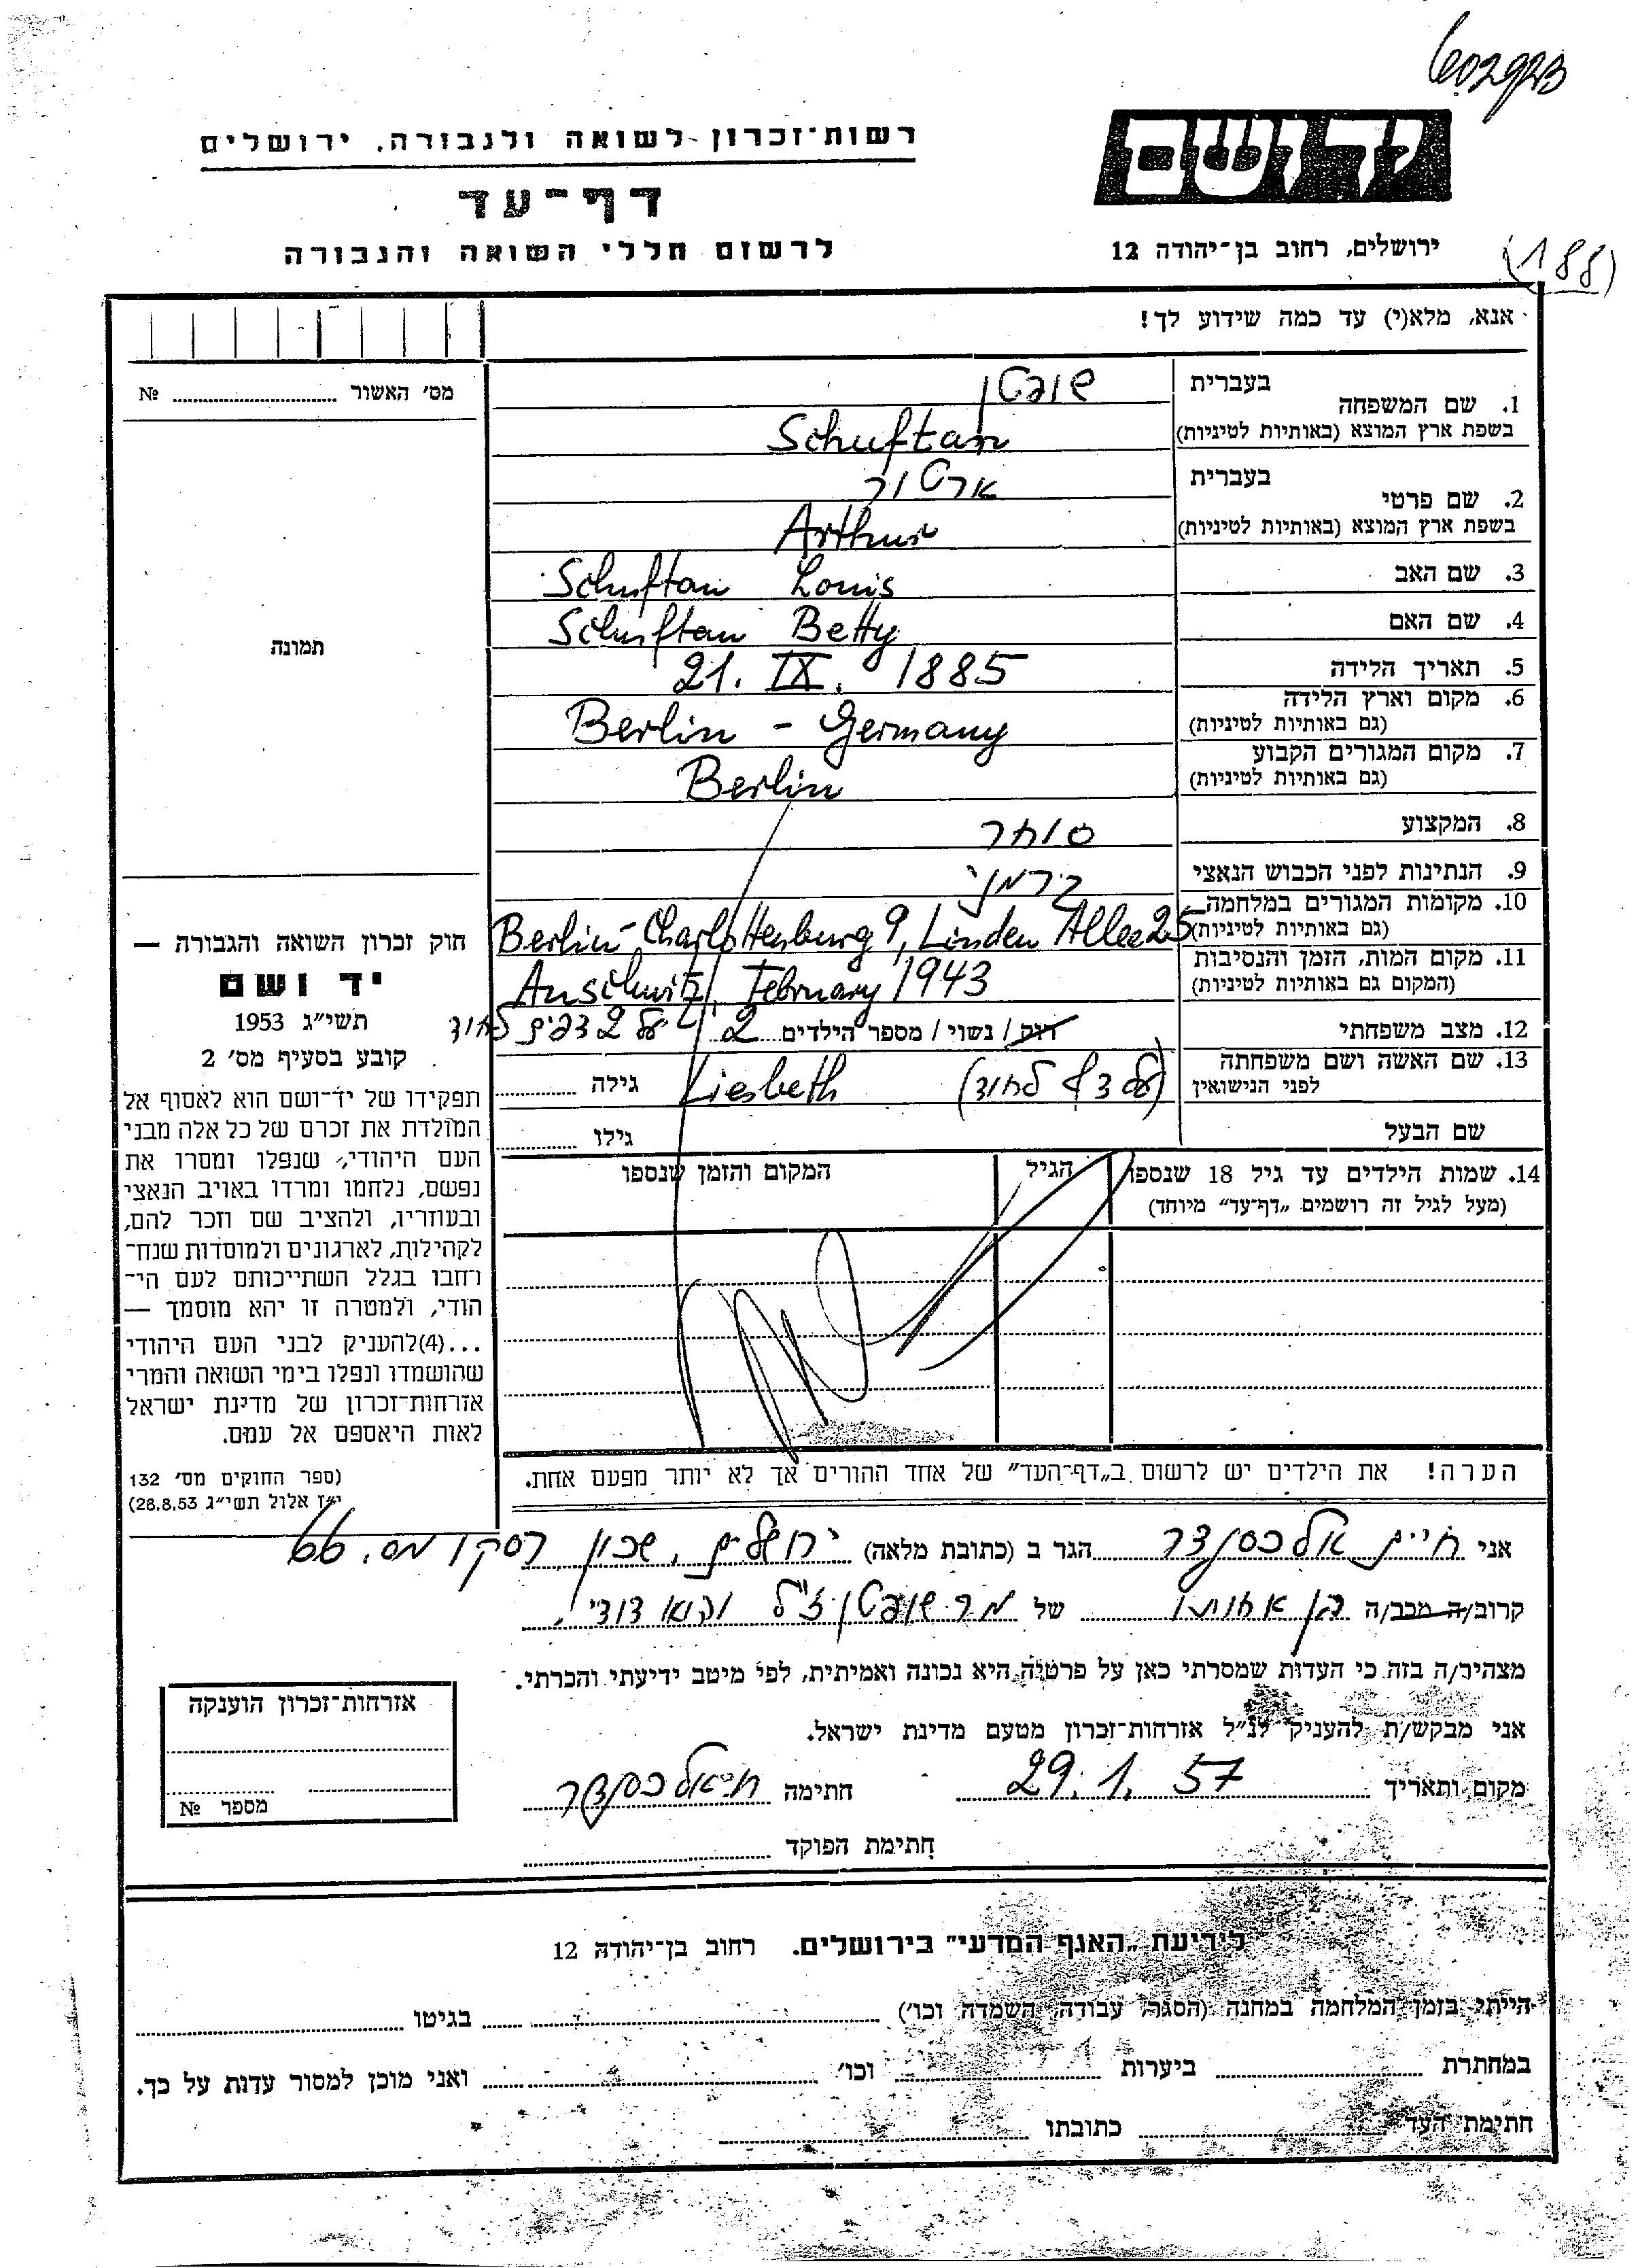 602923
יד ושם
רשות־זכרון לשואה ולגבורה, ירושלים
דף־עד
לרשום חללי השואה והגבורה
ירושלים, רחוב בן־יהודה 12
(188)
אנא, מלא(י) עד כמה שידוע לך!
מס׳ האשור № 
1. שם המשפחה
בעברית שופטן
בשפת ארץ המוצא (באותיות לטיניות) Schuftan
2. שם פרטי
בעברית ארטור
בשפת ארץ המוצא (באותיות לטיניות) Arthur
3. שם האב Schuftan Louis
4. שם האם Schuftan Betty
5. תאריך הלידה 21. IX. 1885
6. מקום וארץ הלידה
(גם באותיות לטיניות) Berlin - Germany
7. מקום המגורים הקבוע
(גם באותיות לטיניות) Berlin
8. המקצוע סוחר
9. הנתינות לפני הכבוש הנאצי גרמני
10. מקומות המגורים במלחמה
(גם באותיות לטיניות) Berlin-Charlottenburg 9, Linden Allee 25
11. מקום המות, הזמן והנסיבות
(המקום גם באותיות לטיניות) Auschwitz, February 1943
12. מצב משפחתי רווק / נשוי / מספר הילדים 2 על 2 דפים לחוד
13. שם האשה ושם משפחתה
לפני הנישואין (על דף לחוד) Liesbeth גילה
שם הבעל גילו
14. שמות הילדים עד גיל 18 שנספו
(מעל לגיל זה רושמים „דף־עד” מיוחד)
הגיל
המקום והזמן שנספו
הערה! את הילדים יש לרשום ב„דף־העד” של אחד ההורים אך לא יותר מפעם אחת.
תמונה
חוק זכרון השואה והגבורה —
יד ושם
תשי״ג 1953
קובע בסעיף מס׳ 2
תפקידו של יד־ושם הוא לאסוף אל
המולדת את זכרם של כל אלה מבני
העם היהודי, שנפלו ומסרו את
נפשם, נלחמו ומרדו באויב הנאצי
ובעוזריו, ולהציב שם וזכר להם,
לקהילות, לארגונים ולמוסדות שנח־
רבו בגלל השתייכותם לעם הי־
הודי, ולמטרה זו יהא מוסמך —
...(4) להעניק לבני העם היהודי
שהושמדו ונפלו בימי השואה והמרי
אזרחות־זכרון של מדינת ישראל
לאות היאספם אל עמם.
(ספר החוקים מס׳ 132
י״ז אלול תשי״ג 28.8.53)
אני חיים אלכסנדר הגר ב (כתובת מלאה) ירושלים, שכון רסקו מס. 66
קרוב/ה מכב/ה בן אחותו של מר שופטן ז״ל והוא דודי.
מצהיר/ה בזה כי העדות שמסרתי כאן על פרטיה היא נכונה ואמיתית, לפי מיטב ידיעתי והכרתי.
אני מבקש/ת להעניק לנ״ל אזרחות־זכרון מטעם מדינת ישראל.
מקום ותאריך 29. 1. 57 חתימה ח. אלכסנדר
חתימת הפוקד
אזרחות־זכרון הוענקה
מספר №
לידיעת „האגף המדעי” בירושלים. רחוב בן־יהודה 12
הייתי בזמן המלחמה במחנה (הסגר, עבודה, השמדה וכו׳) בגיטו
במחתרת ביערות וכו׳ ואני מוכן למסור עדות על כך.
חתימת העד כתובתו